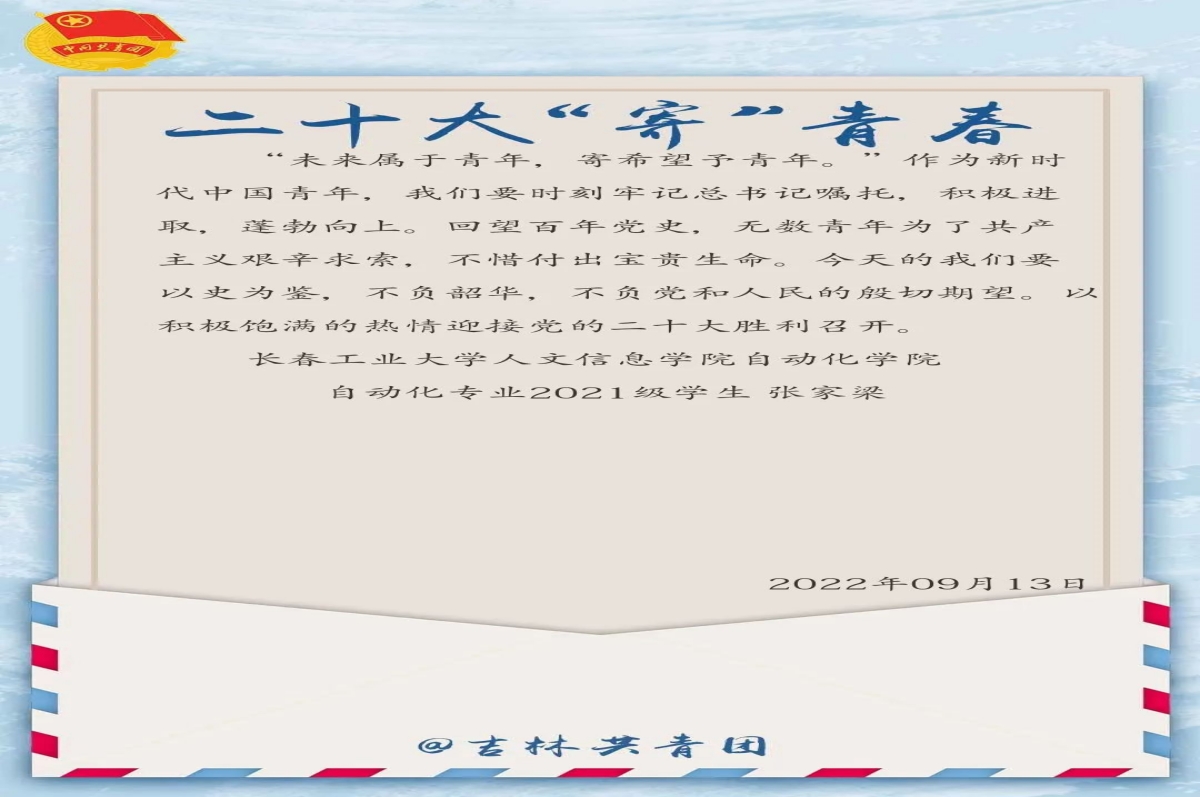 中国共青团
二十大“寄”青春
“未来属于青年，寄希望予青年。”作为新时
代中国青年，我们要时刻牢记总书记嘱托，积极进
取，蓬勃向上。回望百年党史，无数青年为了共产
主义艰辛求索，不惜付出宝贵生命。今天的我们要
以史为鉴，不负韶华，不负党和人民的殷切期望。以
积极饱满的热情迎接党的二十大胜利召开。
长春工业大学人文信息学院自动化学院
自动化专业2021级学生 张家梁
2022年09月13日
@吉林共青团